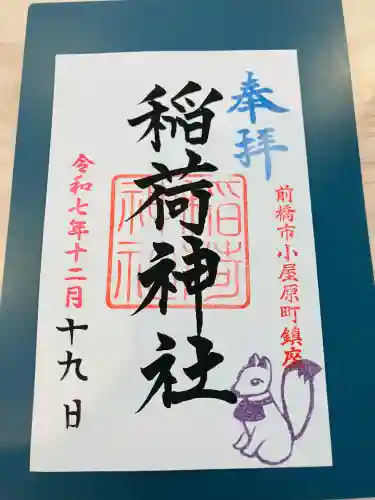 奉拝
前橋市小屋原町鎮座
稲荷神社
稲荷
神社
令和七年十二月十九日